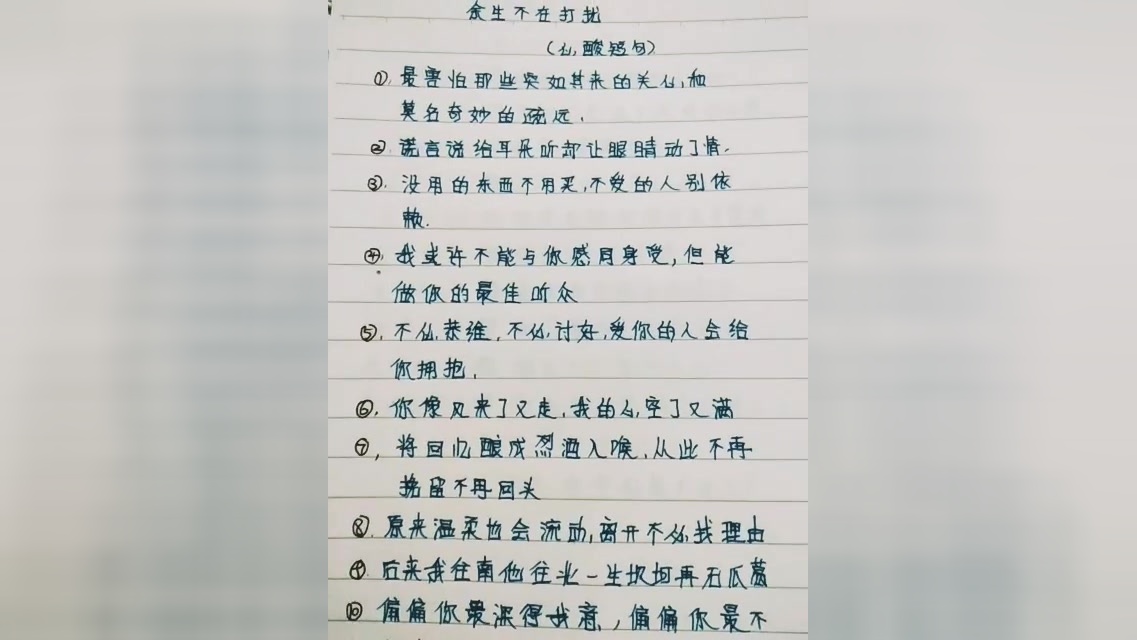 余生不在打扰
(心酸短句)
①. 最害怕那些突如其来的关心,和
莫名奇妙的疏远.
②. 谎言说给耳朵听却让眼睛动了情.
③. 没用的东西不用买,不爱的人别依
赖.
④. 我或许不能与你感同身受,但能
做你的最佳听众
⑤. 不必恭维,不必讨好,爱你的人会给
你拥抱.
⑥. 你像风来了又走,我的心空了又满
⑦, 将回忆酿成烈酒入喉,从此不再
挽留不再回头
⑧. 原来温柔也会流动,离开不必找理由
⑨. 后来我往南他往北一生坎坷再无瓜葛
⑩ 偏偏你最深得我意, 偏偏你最不